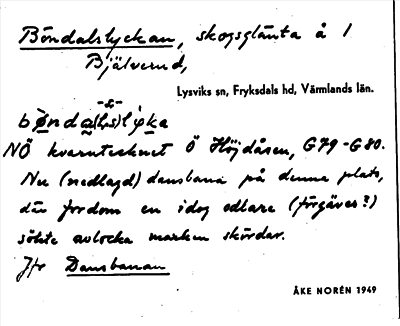 Böndalslyckan, skogsglänta å 1
Bjälverud,
Lysviks sn, Fryksdals hd, Värmlands län.
-s-
bø̀nda(l,s)lýka
NÖ kvarntecknet Ö Höjdåsen, G79-G80.
Nu (nedlagd) dansbana på denna plats,
där fordom en idog odlare (förgäves?)
sökte avlocka marken skördar.
Jfr Dansbanan
ÅKE NORÉN 1949